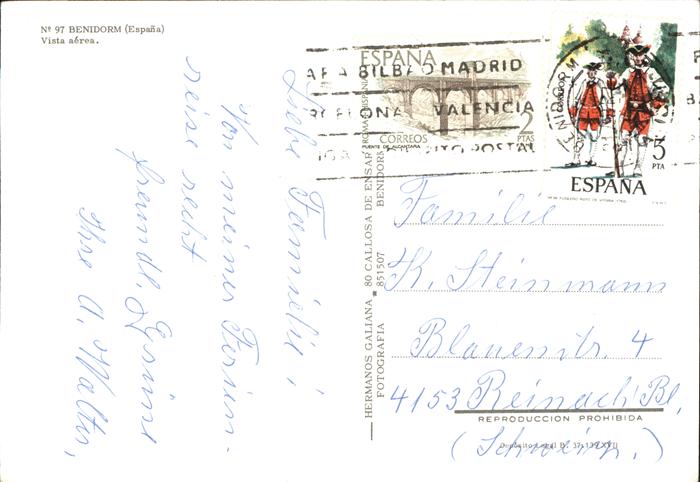 Nº 97 BENIDORM (España)
Vista aérea.
Liebe Familie!
Von meiner Ferien-
reise recht
freundl. Grüsse
Ihre A. Walter,
HERMANOS GALIANA 80 CALLOSA DE ENSAR
FOTOGRAFIA 851507 BENIDORM
ESPAÑA
CORREOS
2
PTAS
PUENTE DE ALCANTARA
ROMA HISPANIA
BILBAO MADRID
VALENCIA
POSTAL
5
PTA
ESPAÑA
Familie
K. Steinmann
Blauenstr. 4
4153 Reinach Bl.
REPRODUCCION PROHIBIDA
(Schweiz.)
Depósito Legal B.